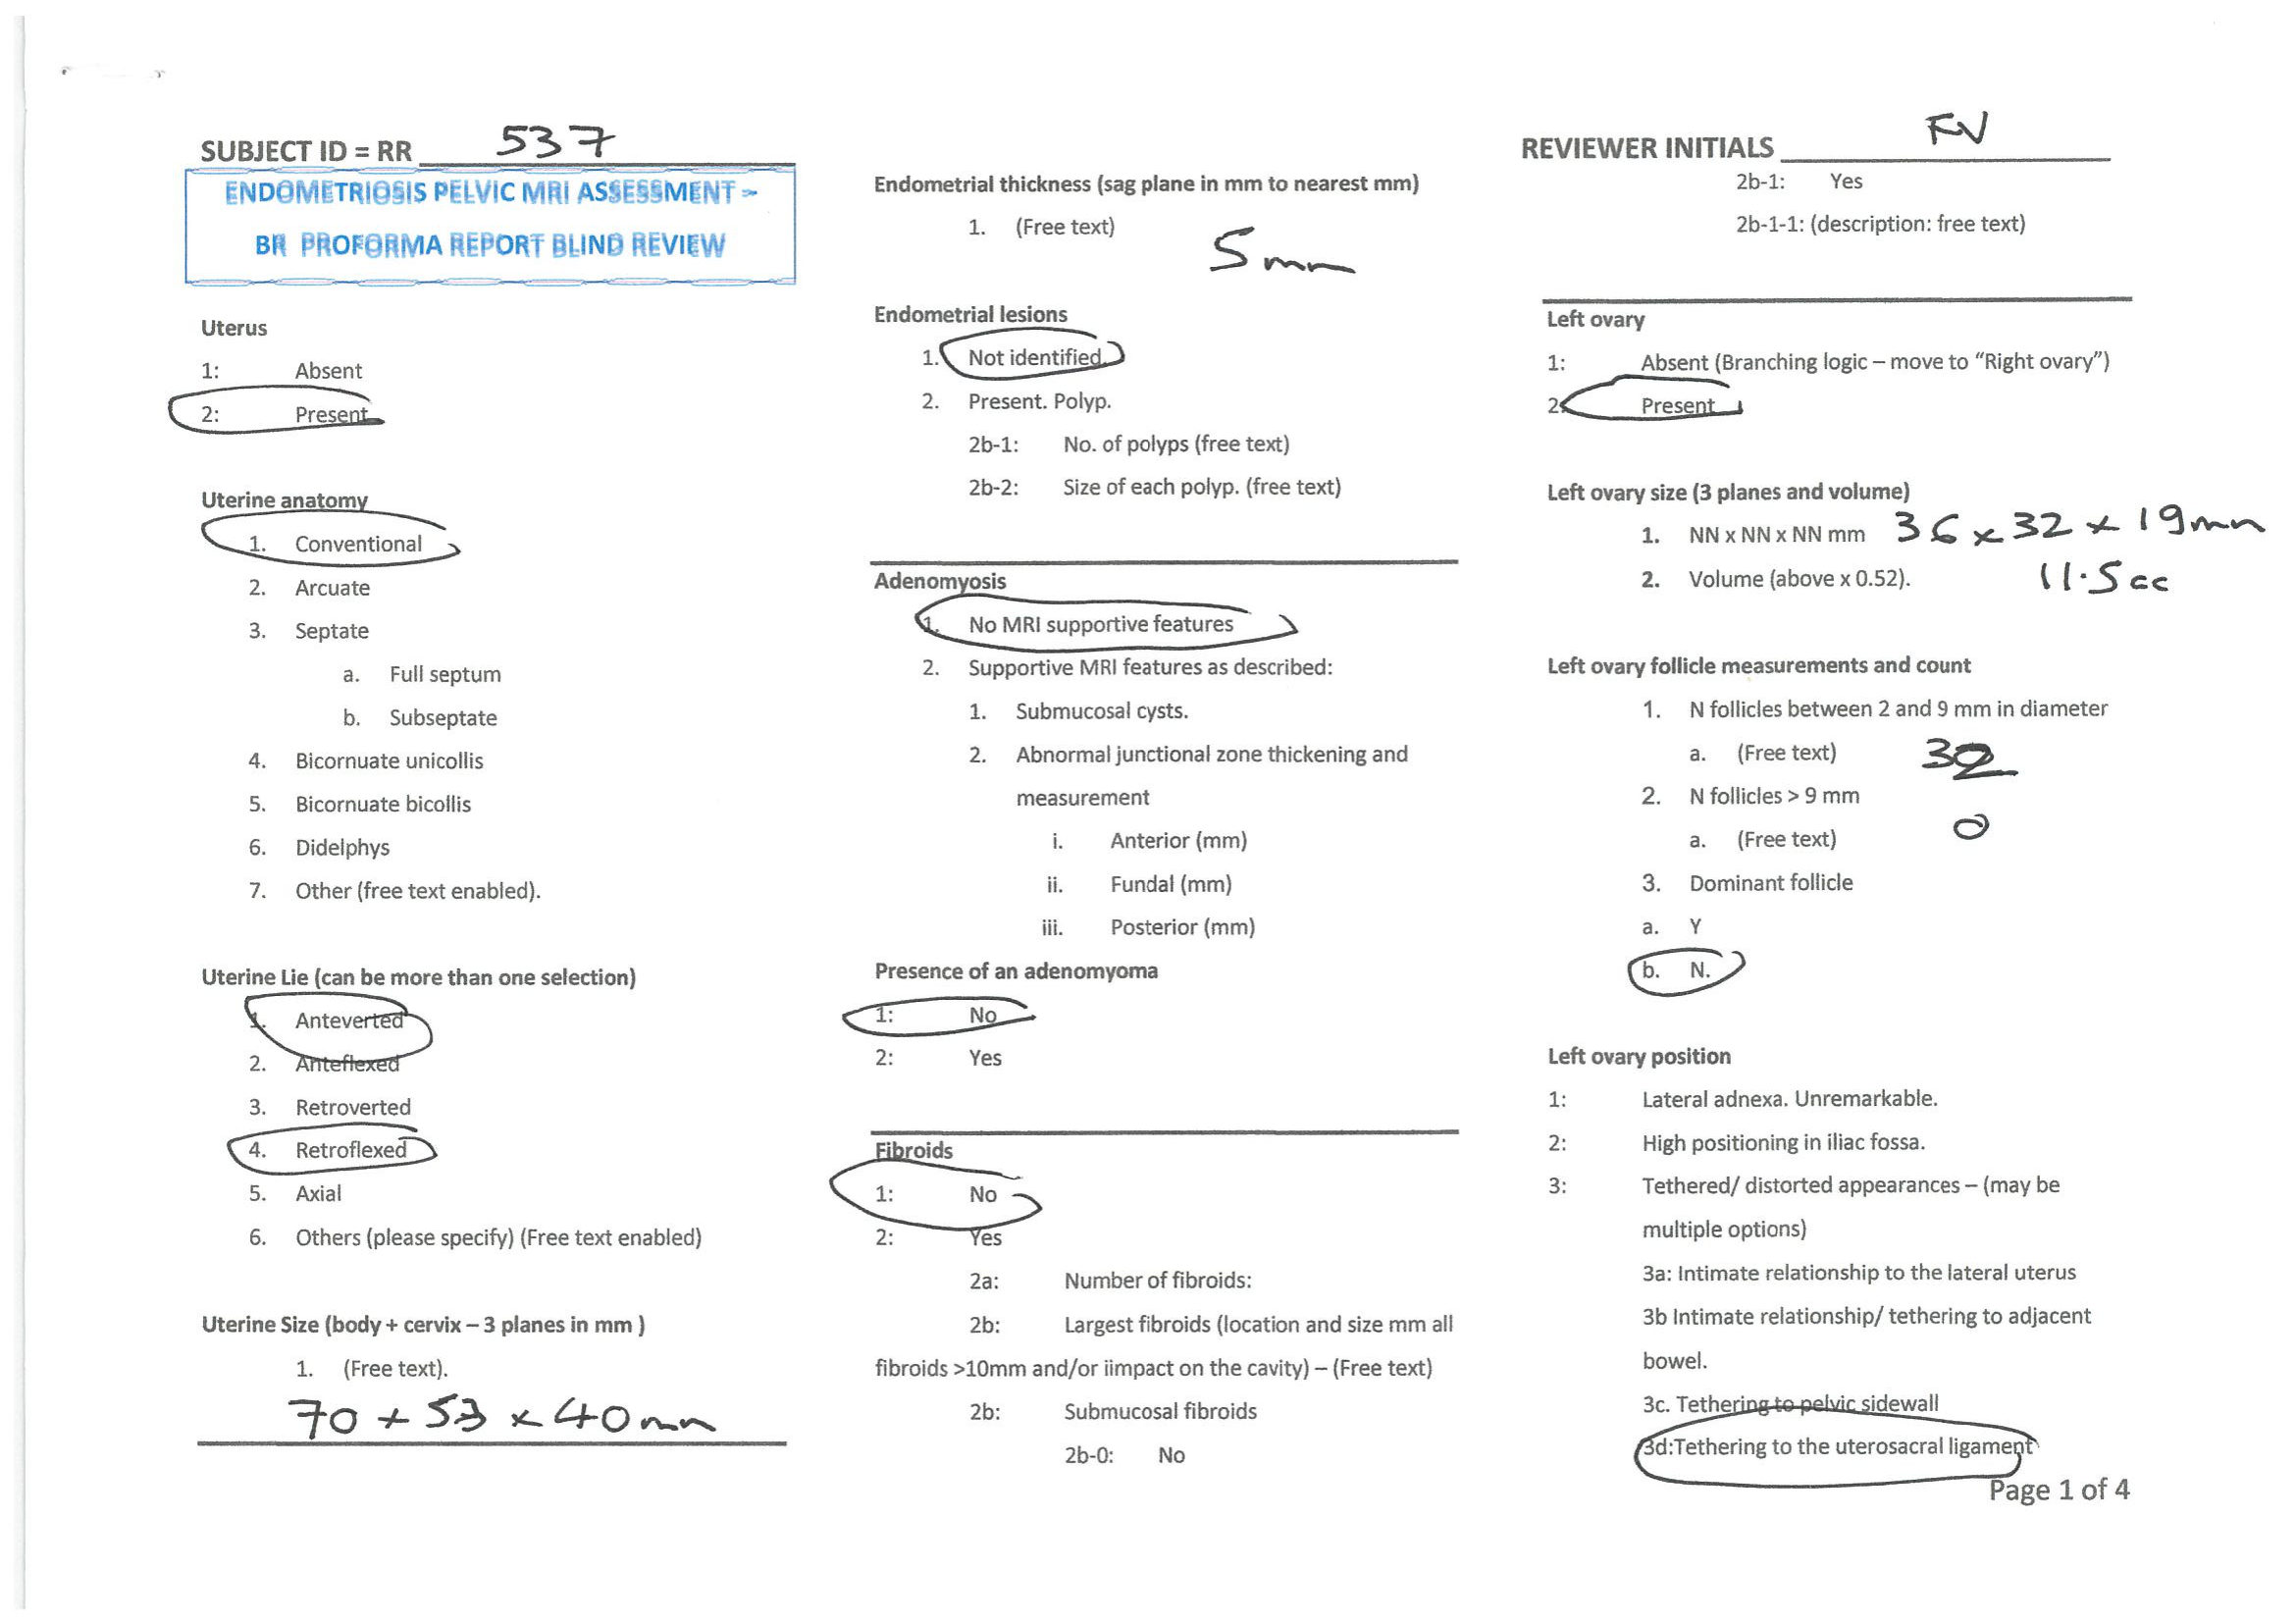 SUBJECT ID = RR 537
ENDOMETRIOSIS PELVIC MRI ASSESSMENT –
BR PROFORMA REPORT BLIND REVIEW
Uterus
1: Absent
2: Present
Uterine anatomy
1. Conventional
2. Arcuate
3. Septate
a. Full septum
b. Subseptate
4. Bicornuate unicollis
5. Bicornuate bicollis
6. Didelphys
7. Other (free text enabled).
Uterine Lie (can be more than one selection)
1. Anteverted
2. Anteflexed
3. Retroverted
4. Retroflexed
5. Axial
6. Others (please specify) (Free text enabled)
Uterine Size (body + cervix – 3 planes in mm )
1. (Free text).
70 x 53 x 40mm
Endometrial thickness (sag plane in mm to nearest mm)
1. (Free text)
5mm
Endometrial lesions
1. Not identified.
2. Present. Polyp.
2b-1: No. of polyps (free text)
2b-2: Size of each polyp. (free text)
Adenomyosis
1. No MRI supportive features
2. Supportive MRI features as described:
1. Submucosal cysts.
2. Abnormal junctional zone thickening and
measurement
i. Anterior (mm)
ii. Fundal (mm)
iii. Posterior (mm)
Presence of an adenomyoma
1: No
2: Yes
Fibroids
1: No
2: Yes
2a: Number of fibroids:
2b: Largest fibroids (location and size mm all
fibroids >10mm and/or iimpact on the cavity) – (Free text)
2b: Submucosal fibroids
2b-0: No
REVIEWER INITIALS FV
2b-1: Yes
2b-1-1: (description: free text)
Left ovary
1: Absent (Branching logic – move to “Right ovary”)
2 Present
Left ovary size (3 planes and volume)
1. NN x NN x NN mm 36 x 32 x 19mm
2. Volume (above x 0.52). 11.5cc
Left ovary follicle measurements and count
1. N follicles between 2 and 9 mm in diameter
a. (Free text)
2. N follicles > 9 mm
a. (Free text) 0
3. Dominant follicle
a. Y
b. N.
Left ovary position
1: Lateral adnexa. Unremarkable.
2: High positioning in iliac fossa.
3: Tethered/ distorted appearances – (may be
multiple options)
3a: Intimate relationship to the lateral uterus
3b Intimate relationship/ tethering to adjacent
bowel.
3c. Tethering to pelvic sidewall
3d:Tethering to the uterosacral ligament
Page 1 of 4